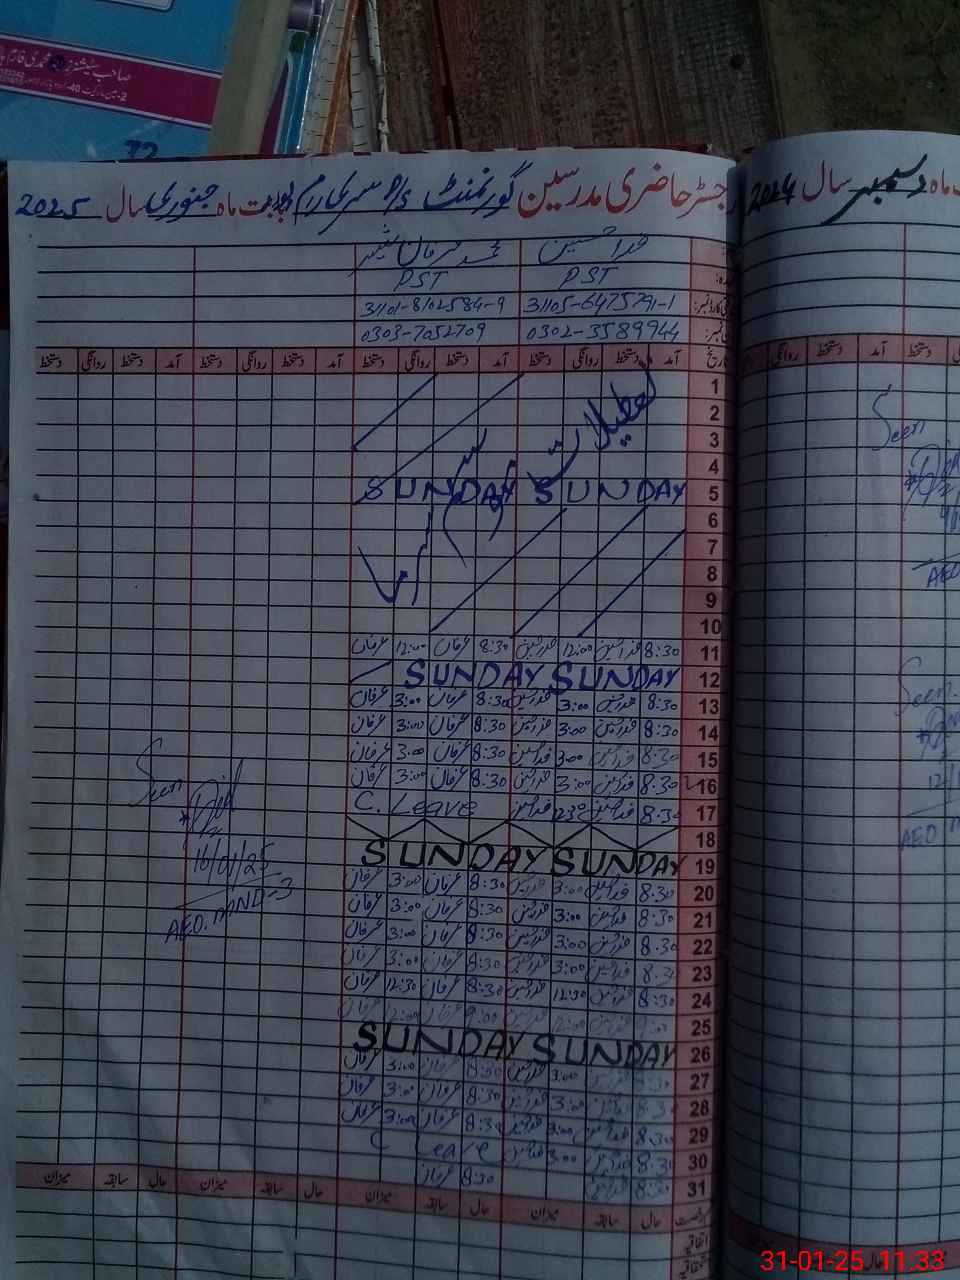 صاحب سٹیشنرز
2-مین مارکیٹ
32
رجسٹر حاضری مدرسین گورنمنٹ P/S بابت ماہ جنوری سال 2025
ماہ دسمبر سال 2024
فدا حسین محمد عرفان
PST PST
31105-6475791-1 31101-8102584-9
0302-3589944 0303-7052709
تاریخ آمد دستخط روانگی دستخط آمد دستخط روانگی دستخط آمد دستخط روانگی دستخط آمد دستخط روانگی دستخط
1
2
3
4
5 SUNDAY SUNDAY
6
7
8
9
10
تعطیلات موسم سرما
11 8:30 فدا حسین 12:00 فدا حسین 8:30 عرفان 12:00 عرفان
12 SUNDAY SUNDAY
13 8:30 فدا حسین 3:00 فدا حسین 8:30 عرفان 3:00 عرفان
14 8:30 فدا حسین 3:00 فدا حسین 8:30 عرفان 3:00 عرفان
15 8:30 فدا حسین 3:00 فدا حسین 8:30 عرفان 3:00 عرفان
16 8:30 فدا حسین 3:00 فدا حسین 8:30 عرفان 3:00 عرفان
17 8:30 فدا حسین 12:30 فدا حسین C. Leave
18
19 SUNDAY SUNDAY
20 8:30 فدا حسین 3:00 فدا حسین 8:30 عرفان 3:00 عرفان
21 8:30 فدا حسین 3:00 فدا حسین 8:30 عرفان 3:00 عرفان
22 8:30 فدا حسین 3:00 فدا حسین 8:30 عرفان 3:00 عرفان
23 8:30 فدا حسین 3:00 فدا حسین 8:30 عرفان 3:00 عرفان
24 8:30 فدا حسین 12:30 فدا حسین 8:30 عرفان 12:30 عرفان
25 9:00 فدا حسین 12:00 فدا حسین 9:00 عرفان 12:00 عرفان
26 SUNDAY SUNDAY
27 8:30 فدا حسین 3:00 فدا حسین 8:30 عرفان 3:00 عرفان
28 8:30 فدا حسین 3:00 فدا حسین 8:30 عرفان 3:00 عرفان
29 8:30 فدا حسین 3:00 فدا حسین 8:30 عرفان 3:00 عرفان
30 8:30 فدا حسین 3:00 فدا حسین C Leave
31 8:30 فدا حسین 8:30 عرفان
Seen
16/01/25
AEO. MND-3
رخصت حال سابقہ میزان حال سابقہ میزان حال سابقہ میزان حال سابقہ میزان
اتفاقیہ
آمد دستخط روانگی دستخط
Seen
AEO
Seen
12/1
AEO. M
حال
31-01-25 11:33